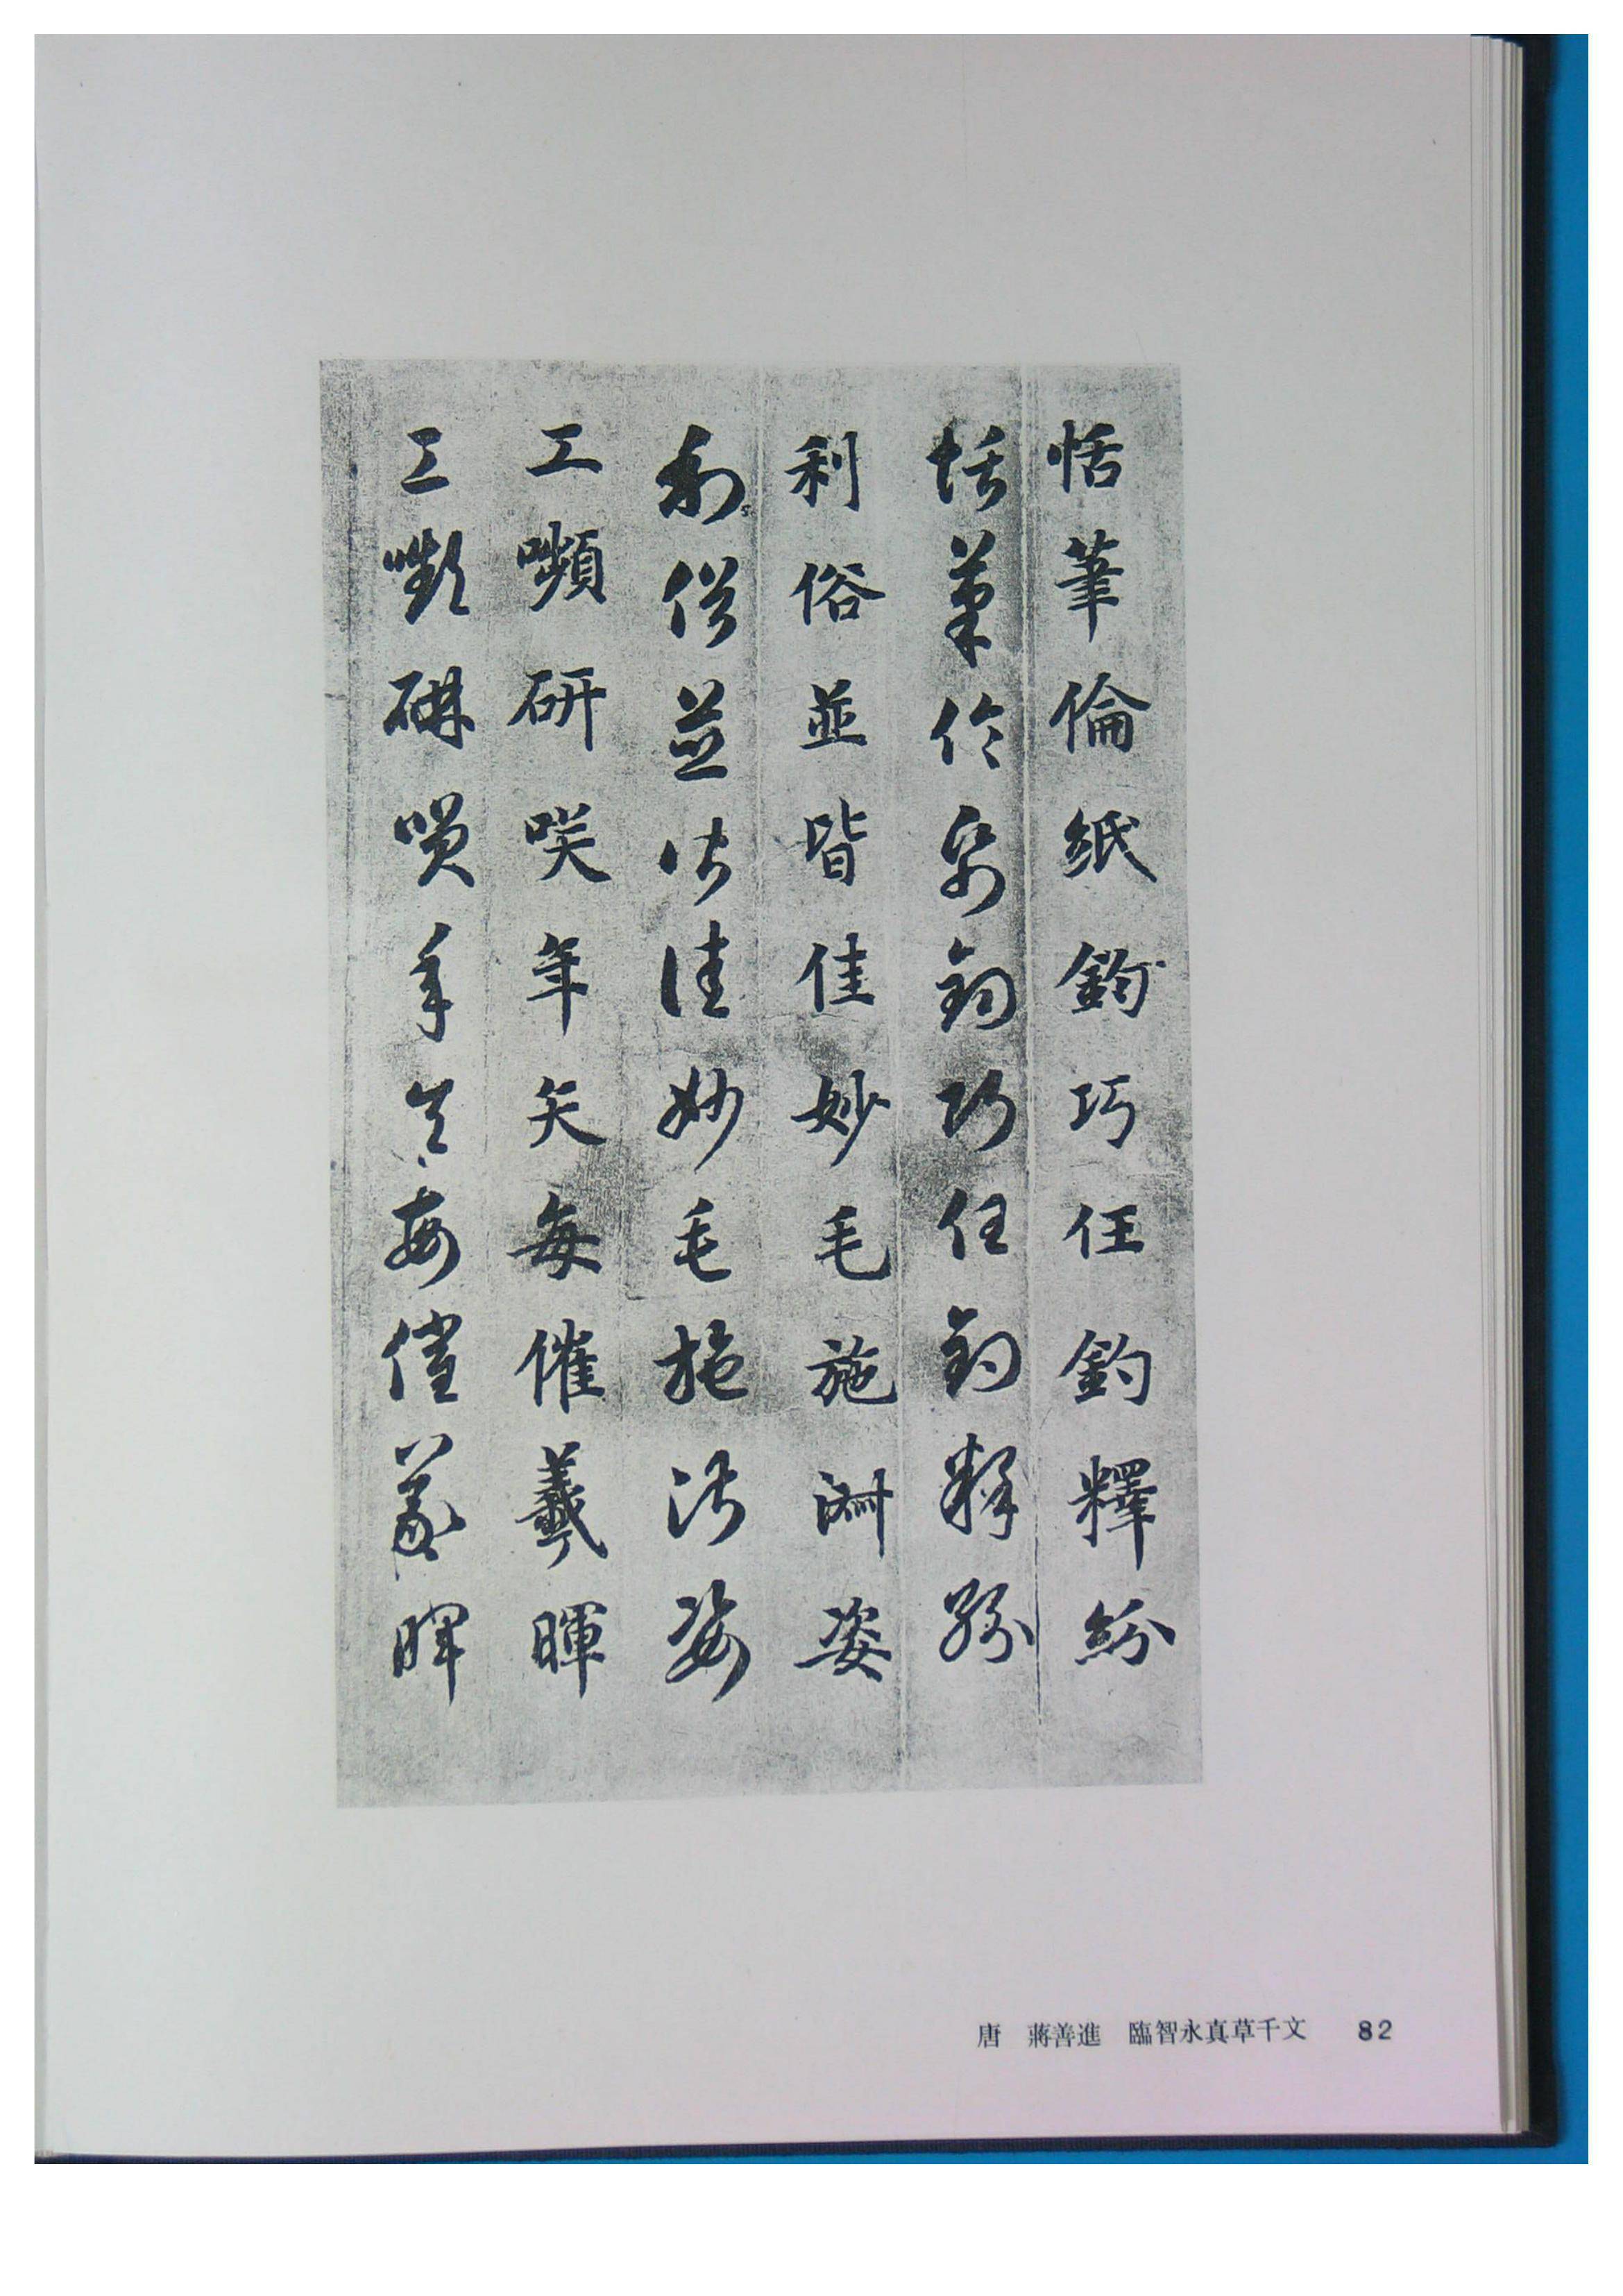 恬筆倫紙鈞巧任釣釋紛
恬筆倫紙鈞巧任釣釋紛
利俗並皆佳妙毛施淋姿
利俗並皆佳妙毛施淑姿
工嚬研咲年矢每催羲暉
工嚬研咲年矢每催羲暉
唐 蔣善進 臨智永真草千文 82